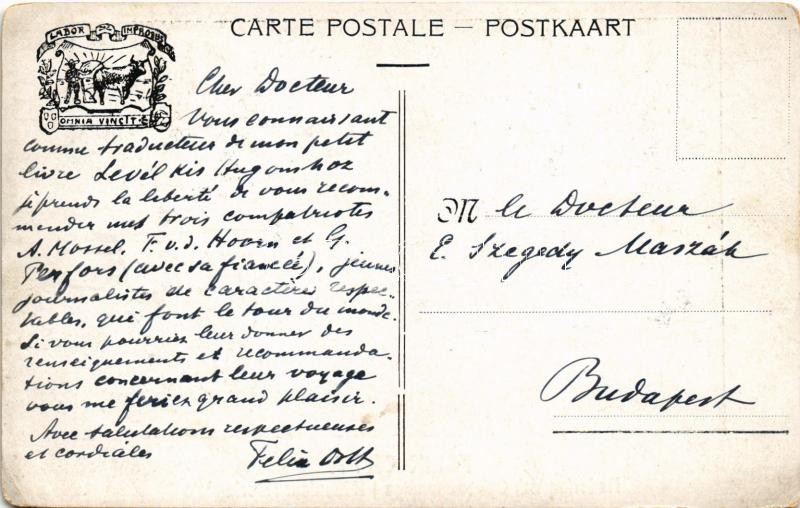 CARTE POSTALE — POSTKAART
LABOR IMPROBUS
OMNIA VINCIT
Cher Docteur
Vous connaissant
comme traducteur de mon petit
livre Levél Kis Hugomhoz
je prends la liberté de vous recom-
mander mes trois compatriotes
A. Mossel, F. v. d. Hoorn et G.
Perfors (avec sa fiancée), jeunes
journalistes de caractères respec-
tables, qui font le tour du monde.
Si vous pourriez leur donner des
renseignements et recommanda-
tions concernant leur voyage
vous me feriez grand plaisir.
Avec salutations respectueuses
et cordiales
Felix Ortt
M le Docteur
E. Szegedy Maszák
Budapest